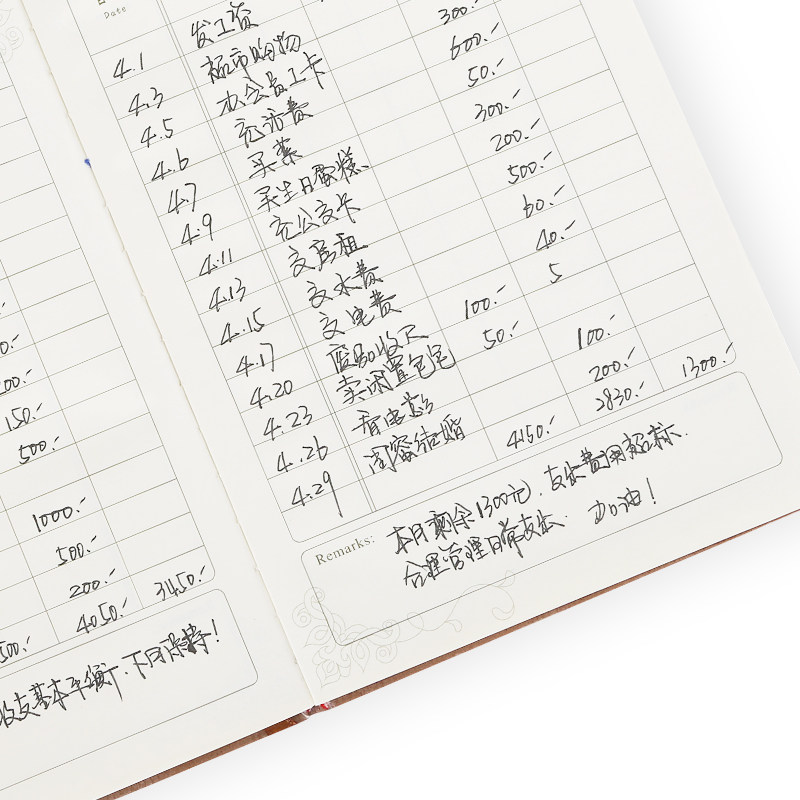 Date
4.1 发工资
4.3 超市购物 300.-
4.5 办会员卡 600.-
4.6 充话费 50.-
4.7 买菜 300.-
4.9 买生日蛋糕 200.-
4.11 充公交卡 500.-
4.13 交房租 60.-
4.15 交水费 40.-
4.17 交电费 5
4.20 100.-
4.23 卖闲置包包 50.-
4.26 看电影 100.-
4.29 闺蜜结婚 200.-
4150.- 2830.- 1300.-
Remarks: 本月剩余1300元, 支出费用超标.
合理管理日常支出. 加油!
150.-
500.-
1000.-
500.-
200.-
500.- 4050.- 3450.-
收支基本平衡, 下月保持!